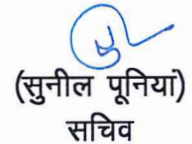 (सुनील पूनियां)
सचिव